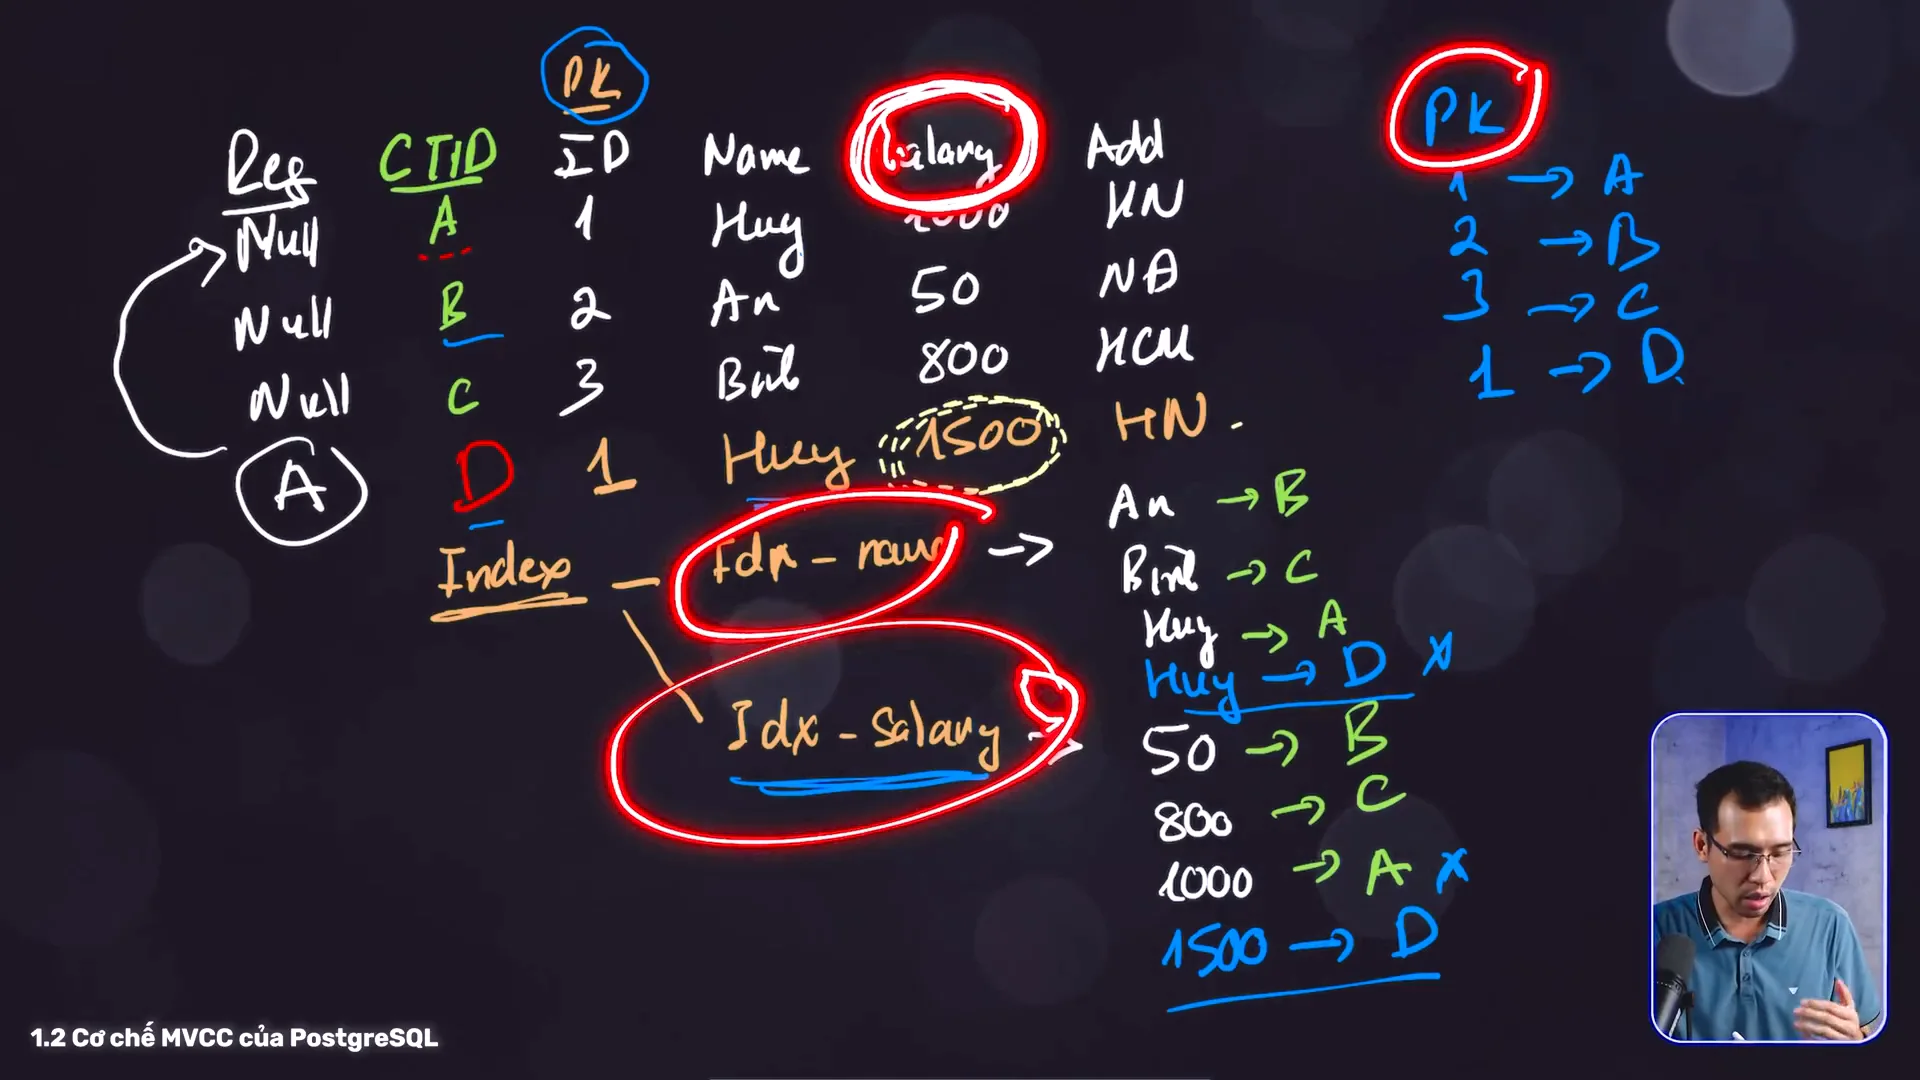 PK
Reg CTID ID Name Salary Add
Null A 1 Huy 1000 HN
Null B 2 An 50 NĐ
Null C 3 Bình 800 HCM
A D 1 Huy 1500 HN
PK
1 → A
2 → B
3 → C
1 → D
Index - Idx - name →
An → B
Bình → C
Huy → A
Huy → D x
Idx - Salary →
50 → B
800 → C
1000 → A x
1500 → D
1.2 Cơ chế MVCC của PostgreSQL